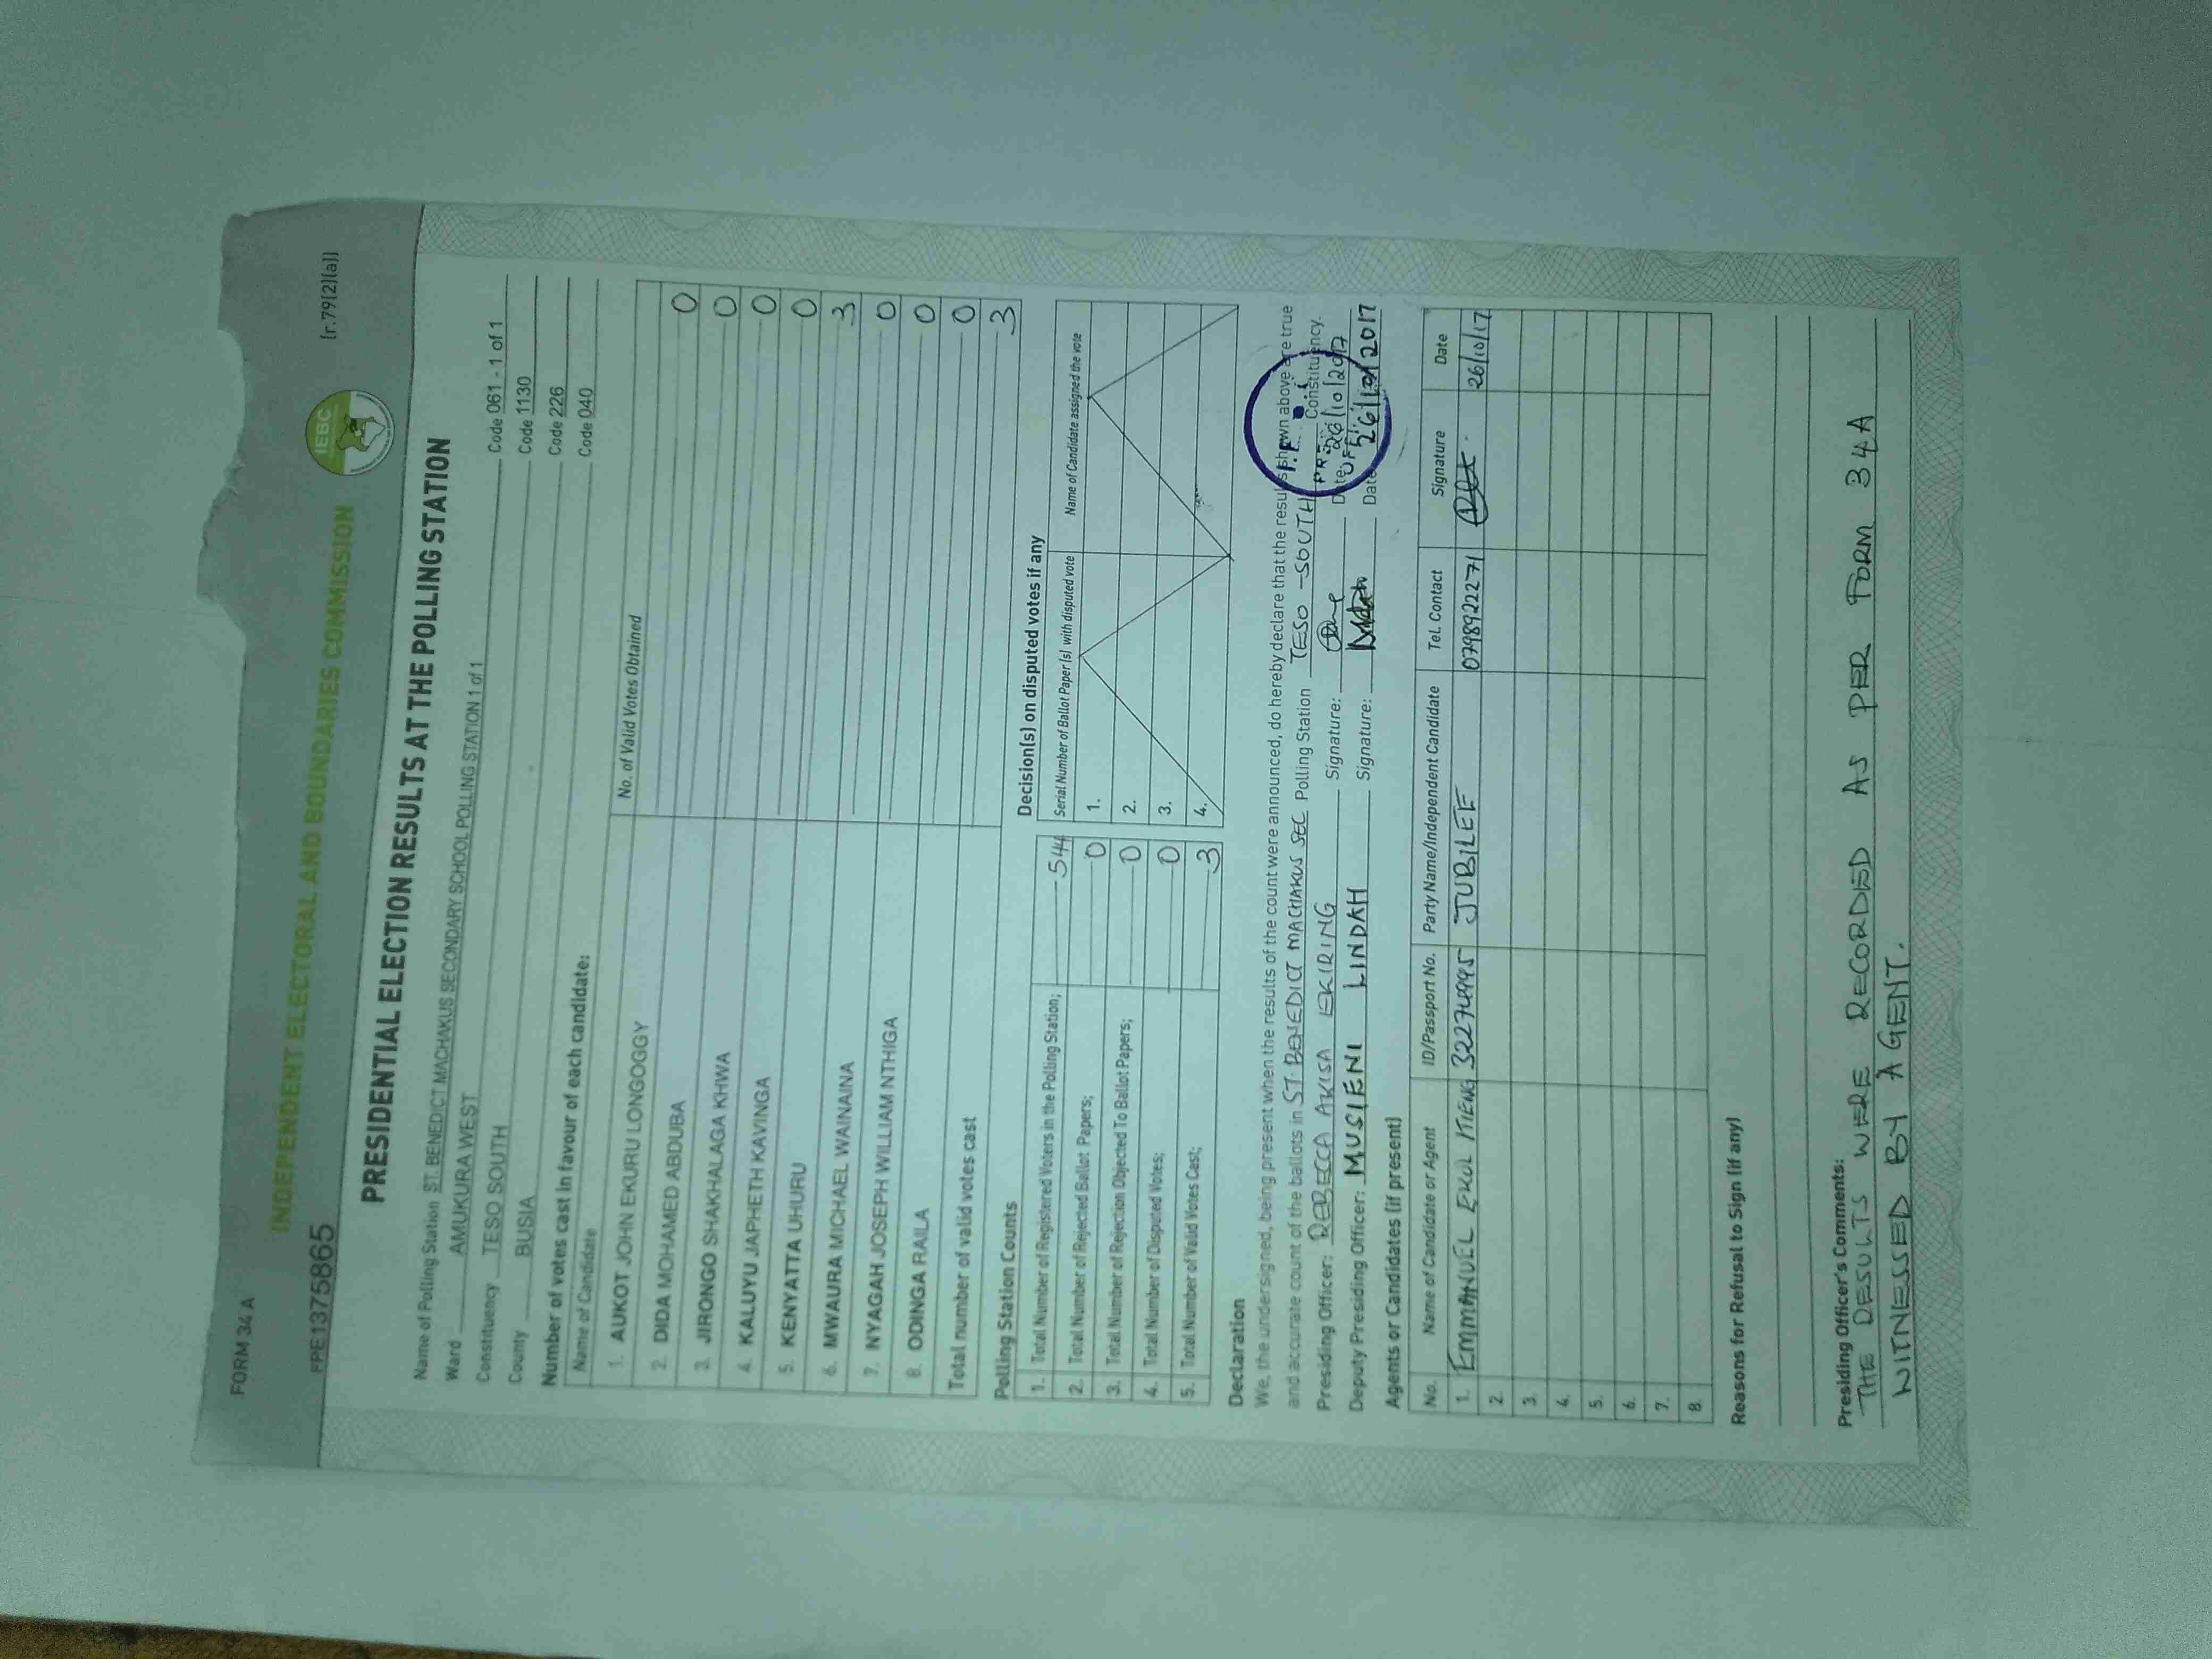 FORM 34 A
INDEPENDENT ELECTORAL AND BOUNDARIES COMMISSION
IEBC
(r.79(2)(a))
FPE1375865
PRESIDENTIAL ELECTION RESULTS AT THE POLLING STATION
Name of Polling Station ST. BENEDICT MACHAKUS SECONDARY SCHOOL POLLING STATION 1 of 1 Code 061 - 1 of 1
Ward AMUKURA WEST Code 1130
Constituency TESO SOUTH Code 226
County BUSIA Code 040
Number of votes cast in favour of each candidate:
Name of Candidate No. of Valid Votes Obtained
1. AUKOT JOHN EKURU LONGOGGY 0
2. DIDA MOHAMED ABDUBA 0
3. JIRONGO SHAKHALAGA KHWA 0
4. KALUYU JAPHETH KAVINGA 0
5. KENYATTA UHURU 3
6. MWAURA MICHAEL WAINAINA 0
7. NYAGAH JOSEPH WILLIAM NTHIGA 0
8. ODINGA RAILA 0
Total number of valid votes cast 3
Polling Station Counts
1. Total Number of Registered Voters in the Polling Station; 544
2. Total Number of Rejected Ballot Papers; 0
3. Total Number of Rejection Objected To Ballot Papers; 0
4. Total Number of Disputed Votes; 0
5. Total Number of Valid Votes Cast; 3
Decision(s) on disputed votes if any
Serial Number of Ballot Paper(s) with disputed vote Name of Candidate assigned the vote
1.
2.
3.
4.
Declaration
We, the undersigned, being present when the results of the count were announced, do hereby declare that the results shown above are true
and accurate count of the ballots in ST. BENEDICT MACHAKUS SEC Polling Station TESO - SOUTH Constituency.
Presiding Officer: REBECCA AKISA EKIRING Signature: Date: 26/10/2017
Deputy Presiding Officer: MUSIENI LINDAH Signature: Date 26/10/2017
Agents or Candidates (if present)
No. Name of Candidate or Agent ID/Passport No. Party Name/Independent Candidate Tel. Contact Signature Date
1. EMMANUEL EKOL ITIENG 32274995 JUBILEE 0798922271 26/10/17
2.
3.
4.
5.
6.
7.
8.
Reasons for Refusal to Sign (if any)
Presiding Officer's Comments:
THE RESULTS WERE RECORDED AS PER FORM 34A
WITNESSED BY AGENT.